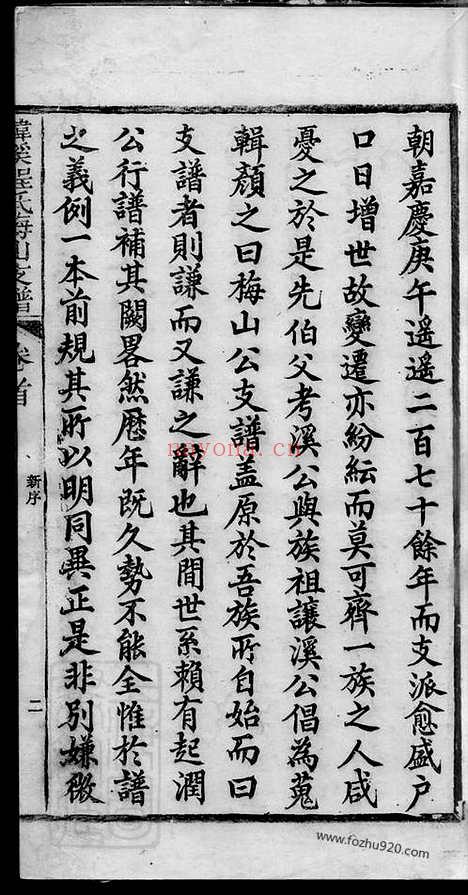 朝嘉慶庚午遥遥二百七十餘年而支派愈盛户
口日增世故變遷亦紛紜而莫可齊一族之人咸
憂之於是先伯父考溪公與族祖讓溪公倡為蒐
輯顏之曰梅山公支譜盖原於吾族所自始而曰
支譜者則謙而又謙之辭也其間世系賴有起潤
公行譜補其闕畧然歷年既久勢不能全惟於譜
之義例一本前規其所以明同異正是非别嫌微
韓溪程氏梅山支譜 卷首 新序 二
nayona.cn
www.fozhu920.com